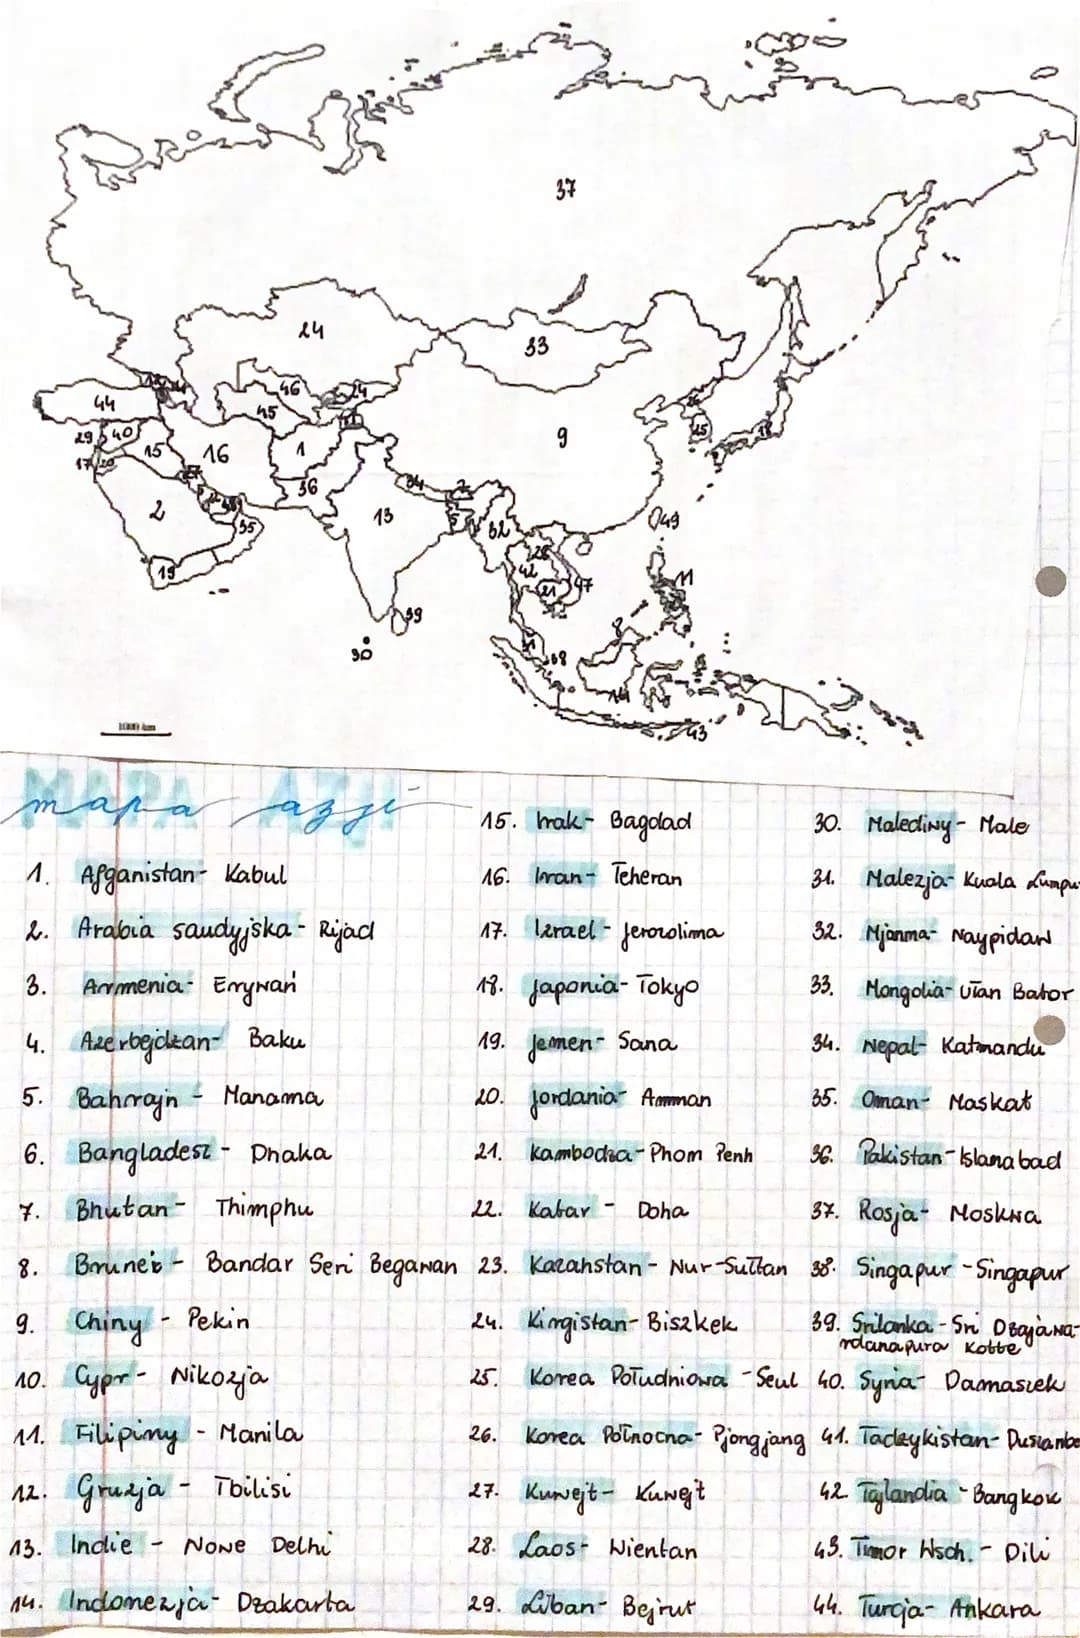 37
24
33
12
44
46
24
45
29
40
15
16
1
9
26
25
18
17
20
27
36
34
7
2
13
5
32
35
19
49
28
42
21
47
11
39
30
8
31
38
14
43
1000 km
MAPA AZJI
mapa azji
1. Afganistan- Kabul
2. Arabia saudyjska - Rijad
3. Armenia- Erywań
4. Azerbejdżan- Baku
5. Bahrajn - Manama
6. Bangladesz - Dhaka
7. Bhutan- Thimphu
8. Brunei - Bandar Seri Begawan
9. Chiny - Pekin
10. Cypr- Nikozja
11. Filipiny - Manila
12. Gruzja - Tbilisi
13. Indie - Nowe Delhi
14. Indonezja- Dżakarta
15. Irak- Bagdad
16. Iran- Teheran
17. Izrael- Jerozolima
18. Japonia- Tokyo
19. Jemen- Sana
20. Jordania- Amman
21. Kambodża- Phom Penh
22. Katar - Doha
23. Kazahstan- Nur-Sułtan
24. Kirgistan- Biszkek
25. Korea Południowa - Seul
26. Korea Północna- Pjongjang
27. Kuwejt- Kuwejt
28. Laos- Wientan
29. Liban- Bejrut
30. Malediwy- Male
31. Malezja- Kuala Lumpu
32. Mjanma- Naypidaw
33. Mongolia- Ułan Bator
34. Nepal- Katmandu
35. Oman- Maskat
36. Pakistan- Islamabad
37. Rosja- Moskwa
38. Singapur - Singapur
39. Srilanka - Sri Dżajawa-
rdanapura Kotte
40. Syria- Damaszek
41. Tadżykistan- Duszanbe
42. Tajlandia - Bangkok
43. Timor Wsch. - Dili
44. Turcja- Ankara